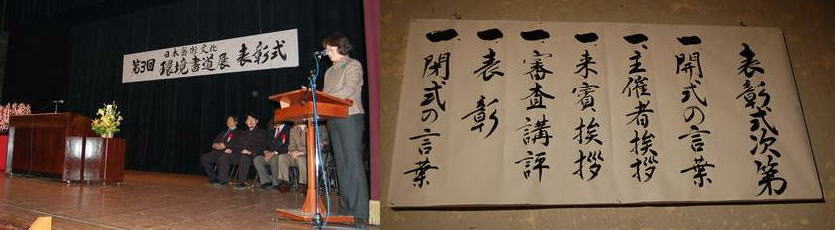 日本藝術文化
第3回 環境書道展 表彰式
表彰式次第
一、開式の言葉
一、主催者挨拶
一、来賓挨拶
一、審査講評
一、表彰
一、閉式の言葉